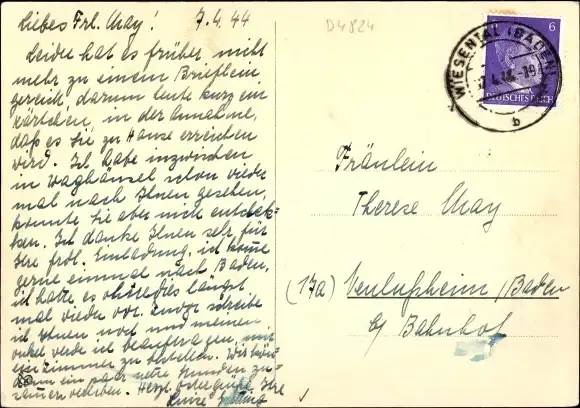 Liebes Frl. May! 7.4.44
Leider hat es früher nicht
mehr zu einem Brieflein
gereicht, darum heute kurz ein
Kärtchen in der Annahme,
daß es Sie zu Hause erreichen
wird. Ich habe inzwischen
in Waghäusel schon wieder
mal nach Ihnen gesehen,
konnte Sie aber nicht entdek-
ken. Ich danke Ihnen sehr für
Ihre frdl. Einladung, ich komme
gerne einmal nach Baden,
ich hatte es ohnedies längst
mal wieder vor. Zuvor schreibe
ich Ihnen noch und meinen
Onkel werde ich beauftragen, mir
ein Zimmer zu bestellen. Wir können
dann ein paar nette Stunden zu-
sammen verleben. Herzl. Ostergrüße, Ihre
Luise
D4824
6
WIESENTAL (BADEN)
b
DEUTSCHES REICH
Fräulein
Therese May
(17a) Neulußheim/Baden
b/ Bahnhof